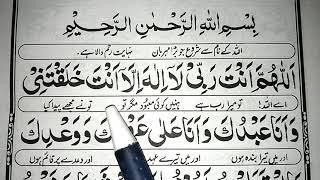 بِسْمِ اللهِ الرَّحْمٰنِ الرَّحِيْمِ
اللہ کے نام سے شروع جو بڑا مہربان نہایت رحم والا ہے۔
اَللّٰهُمَّ اَنْتَ رَبِّىْ لَا اِلٰهَ اِلَّا اَنْتَ خَلَقْتَنِىْ
اے اللہ! تو میرا رب ہے نہیں کوئی معبود مگر تو تو نے مجھے پیدا کیا
وَاَنَا عَبْدُكَ وَاَنَا عَلٰى عَهْدِكَ وَوَعْدِكَ
اور میں تیرا بندہ ہوں اور میں تیرے عہد اور وعدے پر قائم ہوں